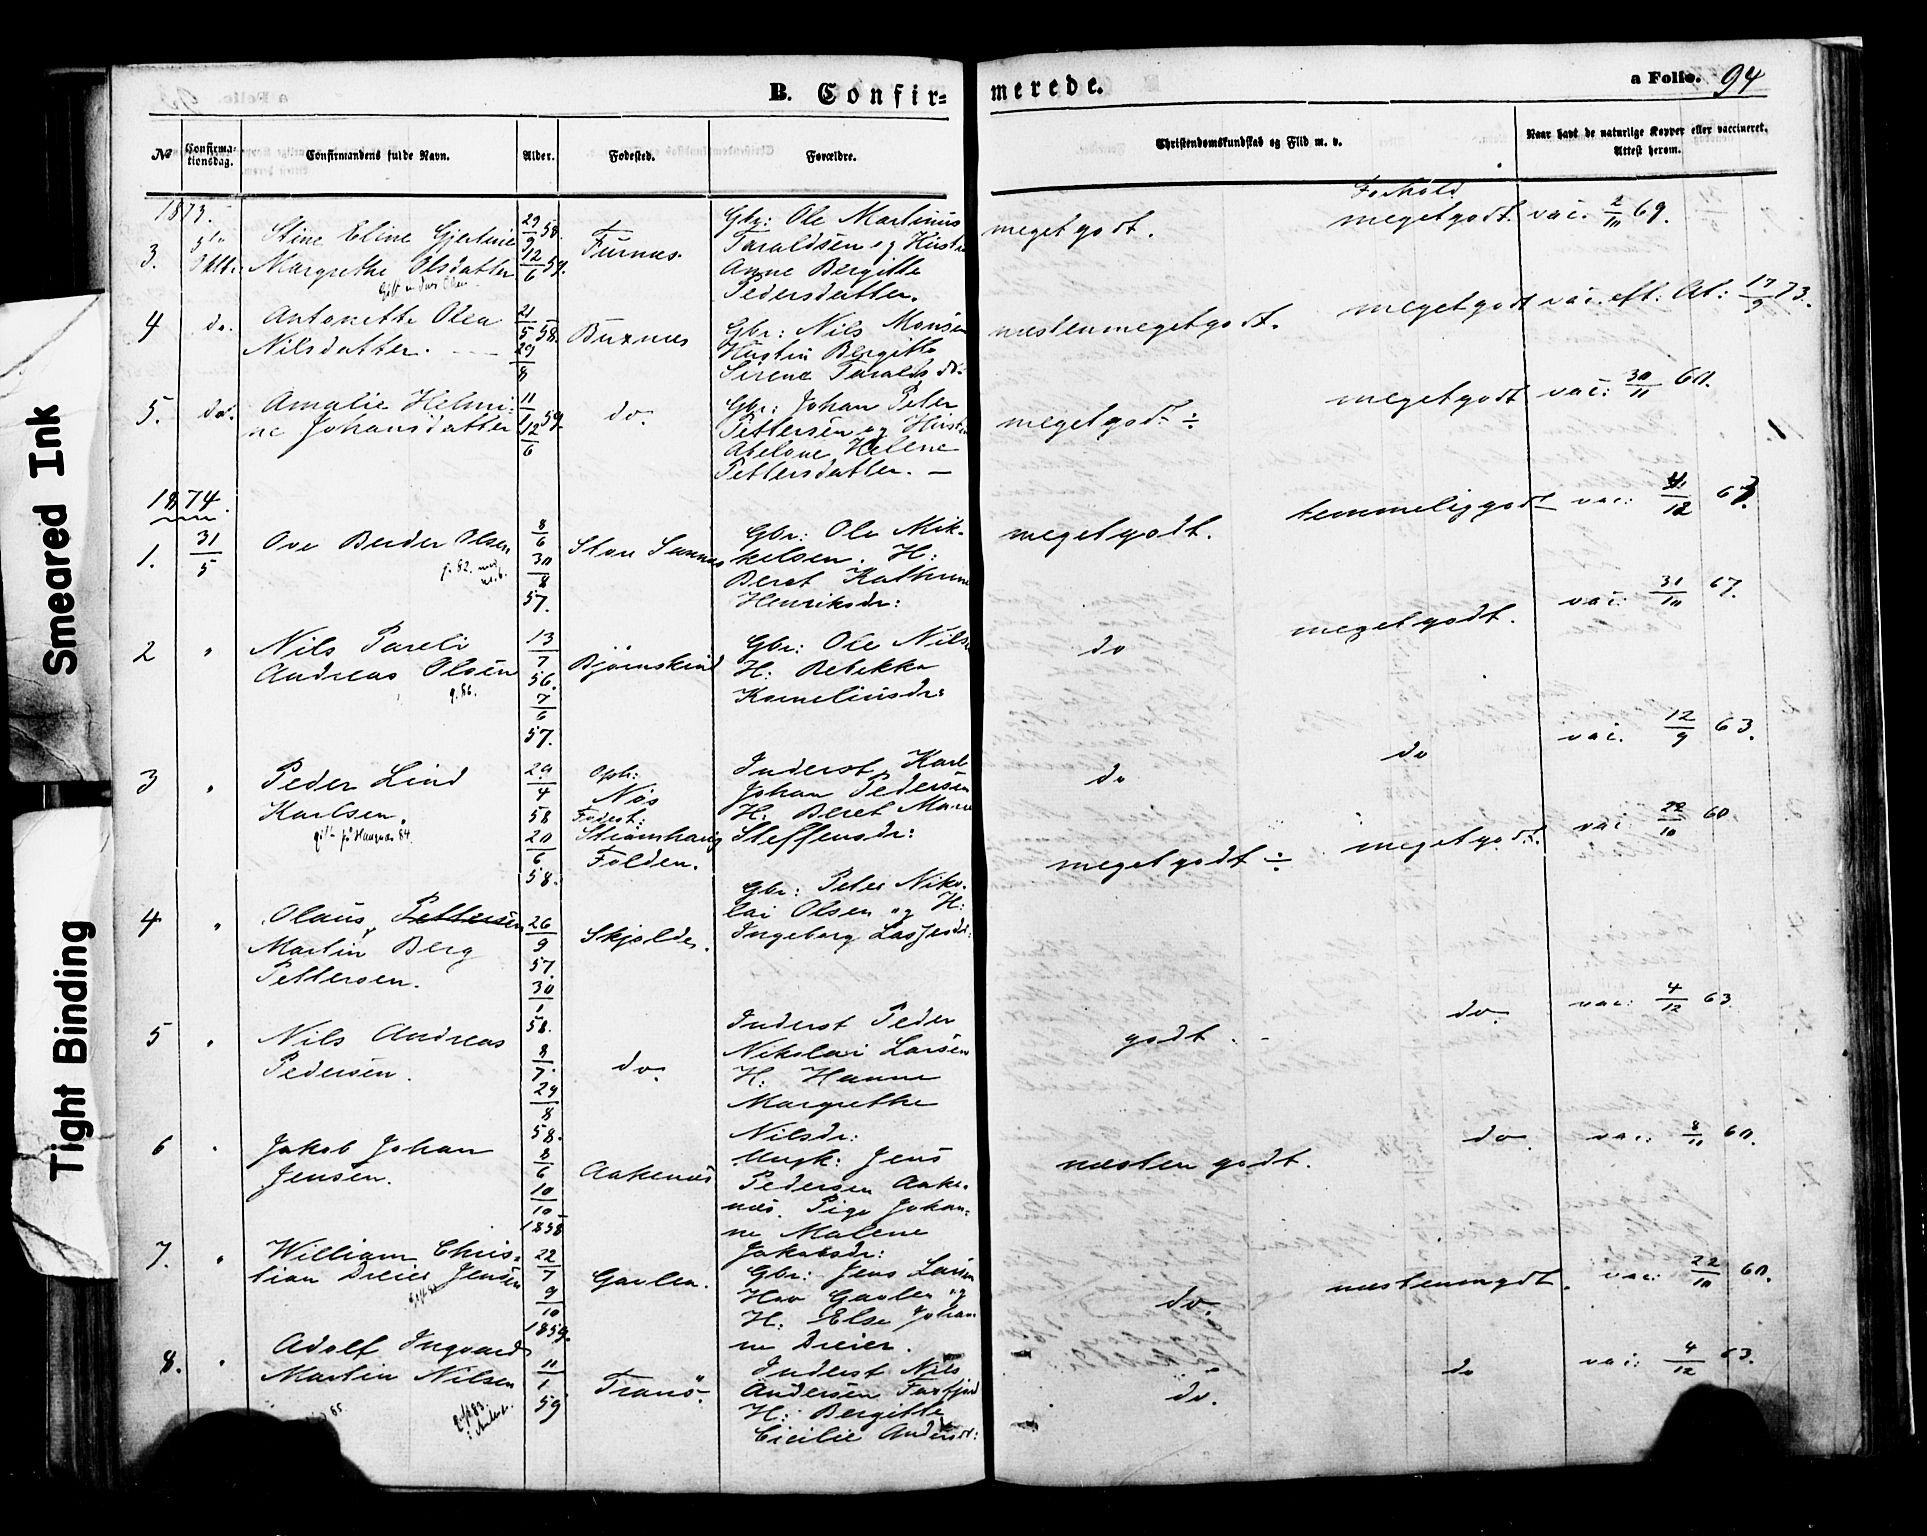 Smeared Ink
Tight Binding
B. Confir=
merede.
a Folio. 94
№
Confirma-
tionsdag.
Confirmandens fulde Navn.
Alder.
Fødested.
Forældre.
Christendomskundskab og Flid m. v.
Naar havt de naturlige Kopper eller vaccineret.
Attest herom.
Forhold
1873.
3.
9de
Oktbr.
Stine Eline Gjertine
Margrethe Olsdatter
29/9 58.
12/6 59.
Furnæs.
Gbr: Ole Martinus
Taraldsen og Hustru
Anne Bergitte
Pedersdatter.
megetgodt.
megetgodt. vac. 2/10 69.
4
do.
Antonette Olea
Nilsdatter.
21/5 58.
29/8
Buxnæs
Gbr: Nils Monsen
Hustru Bergitte
Sirene Taralds dr.
næstenmegetgodt.
megetgodt vac. eft. At: 17/9 73.
5.
do.
Amalie Helmi-
ne Johansdatter
11/1 59.
12/6
do.
Gbr: Johan Peter
Pettersen og Hustru
Abelone Helene
Pettersdatter. —
megetgodt ÷
megetgodt vac: 30/11 60.
1874.
1.
31/5
Ove Berder Olsen
g. 82.
8/6
30/8
57.
Store Sunnæs
Gbr: Ole Mik-
kelsen. H:
Beret Kathrine
Henriksdr:
megetgodt.
temmeliggodt vac: 12 63.
2
"
Nils Pareli
Andreas Olsen
g. 86.
13/7
56.
7/6
57.
Bjørnskind
Gbr: Ole Nils
H: Rebekka
Korneliusdr:
do
megetgodt.
vac: 31/10 67.
3
"
Peder Lind
Karlsen.
gift på Haugnæs 84.
29/4
58
20/6
58.
Oph:
Nøs
Fødest:
Strømhaug
Folden.
Inderst Karl
Johan Pedersen
H: Beret Marie
Steffensdr:
do
do
vac. 12/9 63.
4
"
Olaus Pettersen
Martin Berg
Pettersen.
26/9
57.
30/1
58.
Skjolde.
Gbr: Peter Niko-
lai Olsen og H:
Ingeborg Lassesdr:
megetgodt ÷
megetgodt.
vac 22/10 60.
5
"
Nils Andreas
Pedersen.
8/7
29/8
58.
do.
Inderst Peder
Nikolai Larsen
H: Hanna
Margrethe
Nilsdr:
godt.
do.
vac: 4/12 63.
6
"
Jakob Johan
Jensen.
8/6
10/10
1858
Aakenæs
Ungk: Jens
Pedersen Aake-
næs. Pige Johan-
ne Malene
Jakobsdr:
næsten godt.
do
vac: 8/11 60.
7.
"
William Chris-
tian Dreier Jensen
22/7
9/10
1859.
Gavlen.
Gbr: Jens Larsen
Hav Gavlen og
H: Else Johan
ne Dreier.
do.
næstenmgdt.
vac: 22/10 60.
8.
"
Adolf Ingvard
Martin Nilsen
11/1
59
Tranö.
Inderst Nils
Andersen Faxfjord
H: Bergitte
Cicilie Andersdr:
do.
do
vac: 4/12 63.